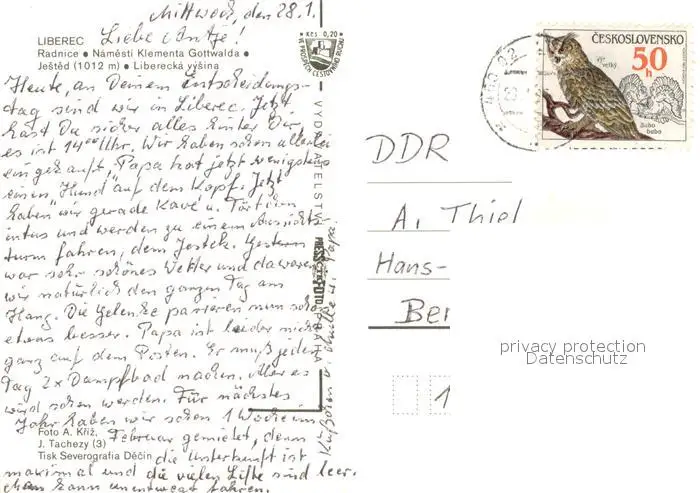 Mittwoch, den 28.1.
Liebe Antje!
LIBEREC
Radnice • Náměstí Klementa Gottwalda •
Ještěd (1012 m) • Liberecká výšina
Heute, an Deinem Entscheidungs-
tag sind wir in Liberec. Jetzt
hast Du sicher alles hinter Dir,
es ist 14⁰⁰ Uhr. Wir haben schon allerlei
eingekauft, Papa hat jetzt wenigstens
einen "Hund" auf dem Kopf. Jetzt
haben wir gerade Kavé u. Törtchen
intus und werden zu einem Aussichts-
turm fahren, dem Jestek. Gestern
war sehr schönes Wetter und da waren
wir natürlich den ganzen Tag am
Hang. Die Gelenke parieren nun schon
etwas besser. Papa ist leider nicht
ganz auf dem Posten. Er muß jeden
Tag 2x Dampfbad machen. Aber es
wird schon werden. Für nächstes
Jahr haben wir schon 1 Woche im
Februar gemietet, denn
die Unterkunft ist
maximal und die vielen Lifte sind leer.
Man kann unentwegt fahren.
Foto A. Kříž,
J. Tachezy (3)
Tisk Severografia Děčín
Mutti u. Papa
Kčs 0,20
VE PROSPĚCH CESTOVNÍHO RUCHU
VYDAVATELSTVÍ
PRESSFOTO
PRAHA
ČESKOSLOVENSKO
50 h
výr velký
Bubo
bubo
460 02
DDR
A. Thiel
Hans-
Ber
1
privacy protection
Datenschutz